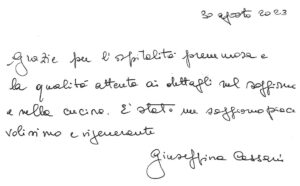 30 agosto 2023
Grazie per l'ospitalità premurosa e
la qualità attenta ai dettagli nel soggiorno
e nella cucina. E' stato un soggiorno piace
volissimo e rigenerante
Giuseffina Cassari